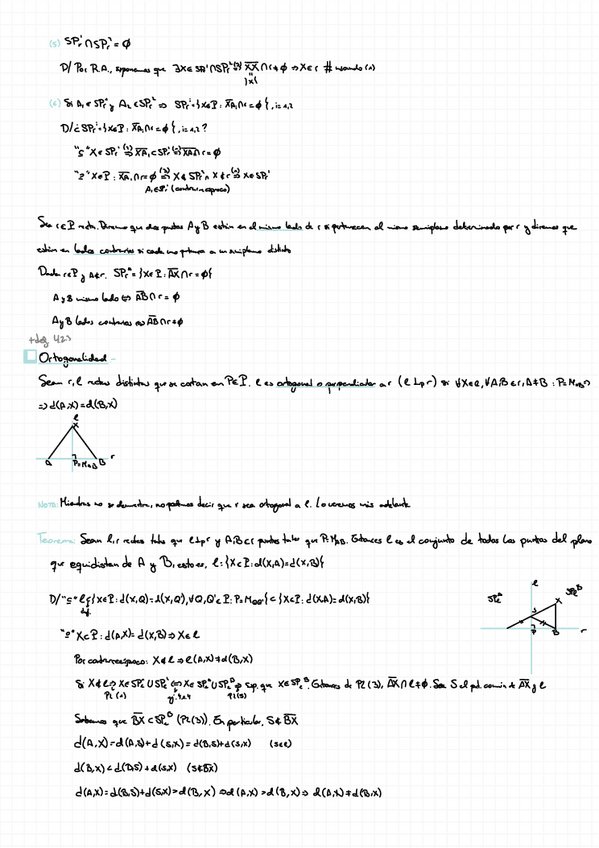 (5) SPr¹ ∩ SPr² = ∅
D/ Por R.A., suponemos que ∃X∈SPr¹∩SPr² ⇒ X̄X̄∩r≠∅ ⇒ X∈r # usando (2)
{X}
(6) Si A₁∈SPr¹ y A₂∈SPr² ⇒ SPrⁱ={X∈P: X̄Āᵢ∩r=∅}, i=1,2
D/ ¿SPrⁱ={X∈P: X̄Āᵢ∩r=∅}, i=1,2?
"⊆" X∈SPrⁱ ⇒ X̄Āᵢ⊂SPrⁱ ⇒ X̄Āᵢ∩r=∅
"⊇" X∈P: X̄Āᵢ∩r=∅ ⇒ X∉SPrʲ ∧ X∉r ⇒ X∈SPrⁱ
Aᵢ∈SPrⁱ (contrarrecíproco)
Sea r∈P recta. Diremos que dos puntos A y B están en el mismo lado de r si pertenecen al mismo semiplano determinado por r y diremos que
están en lados contrarios si cada uno pertenece a un semiplano distinto
Dada r∈P y A∉r. SPrᴬ={X∈P: ĀX̄∩r=∅}
A y B mismo lado ⇔ ĀB̄∩r=∅
A y B lados contrarios ⇔ ĀB̄∩r≠∅
Ortogonalidad
Sean r, l rectas distintas que se cortan en P∈P. l es ortogonal o perpendicular a r (l⊥ₚr) si ∀X∈l, ∀A,B∈r, A≠B: P=M_AB ⇒
⇒ d(A,X)=d(B,X)
l
X
A P=M_AB B r
NOTA: Mientras no se demuestre, no podemos decir que r sea ortogonal a l. Lo veremos más adelante
Teorema: Sean l, r rectas tales que l⊥ₚr y A,B∈r puntos tales que P=M_AB. Entonces l es el conjunto de todos los puntos del plano
que equidistan de A y B, esto es, l={X∈P: d(X,A)=d(X,B)}
l
SPlᴬ SPlᴮ
X
S
P B r
D/ "⊆" l ⊂ {X∈P: d(X,Q)=d(X,Q'), ∀Q,Q'∈r: P=M_QQ'} ⊂ {X∈P: d(X,A)=d(X,B)}
def.
"⊇" X∈P: d(A,X)=d(X,B) ⇒ X∈l
Por contrarrecíproco: X∉l ⇒ d(A,X)≠d(B,X)
Si X∉l ⇒ X∈SPl¹∪SPl² ⇔ X∈SPlᴬ∪SPlᴮ ⇒ Sup. que X∈SPlᴮ. Entonces de P2(3), ĀX̄∩l≠∅. Sea S el pto común de ĀX̄ y l
Sabemos que B̄X̄⊂SPlᴮ (P2(3)). En particular, S∉B̄X̄
d(A,X)=d(A,S)+d(S,X)=d(B,S)+d(S,X) (S∈l)
d(B,X)<d(B,S)+d(S,X) (S∉B̄X̄)
d(A,X)=d(B,S)+d(S,X)>d(B,X) ⇒ d(A,X)>d(B,X) ⇒ d(A,X)≠d(B,X)